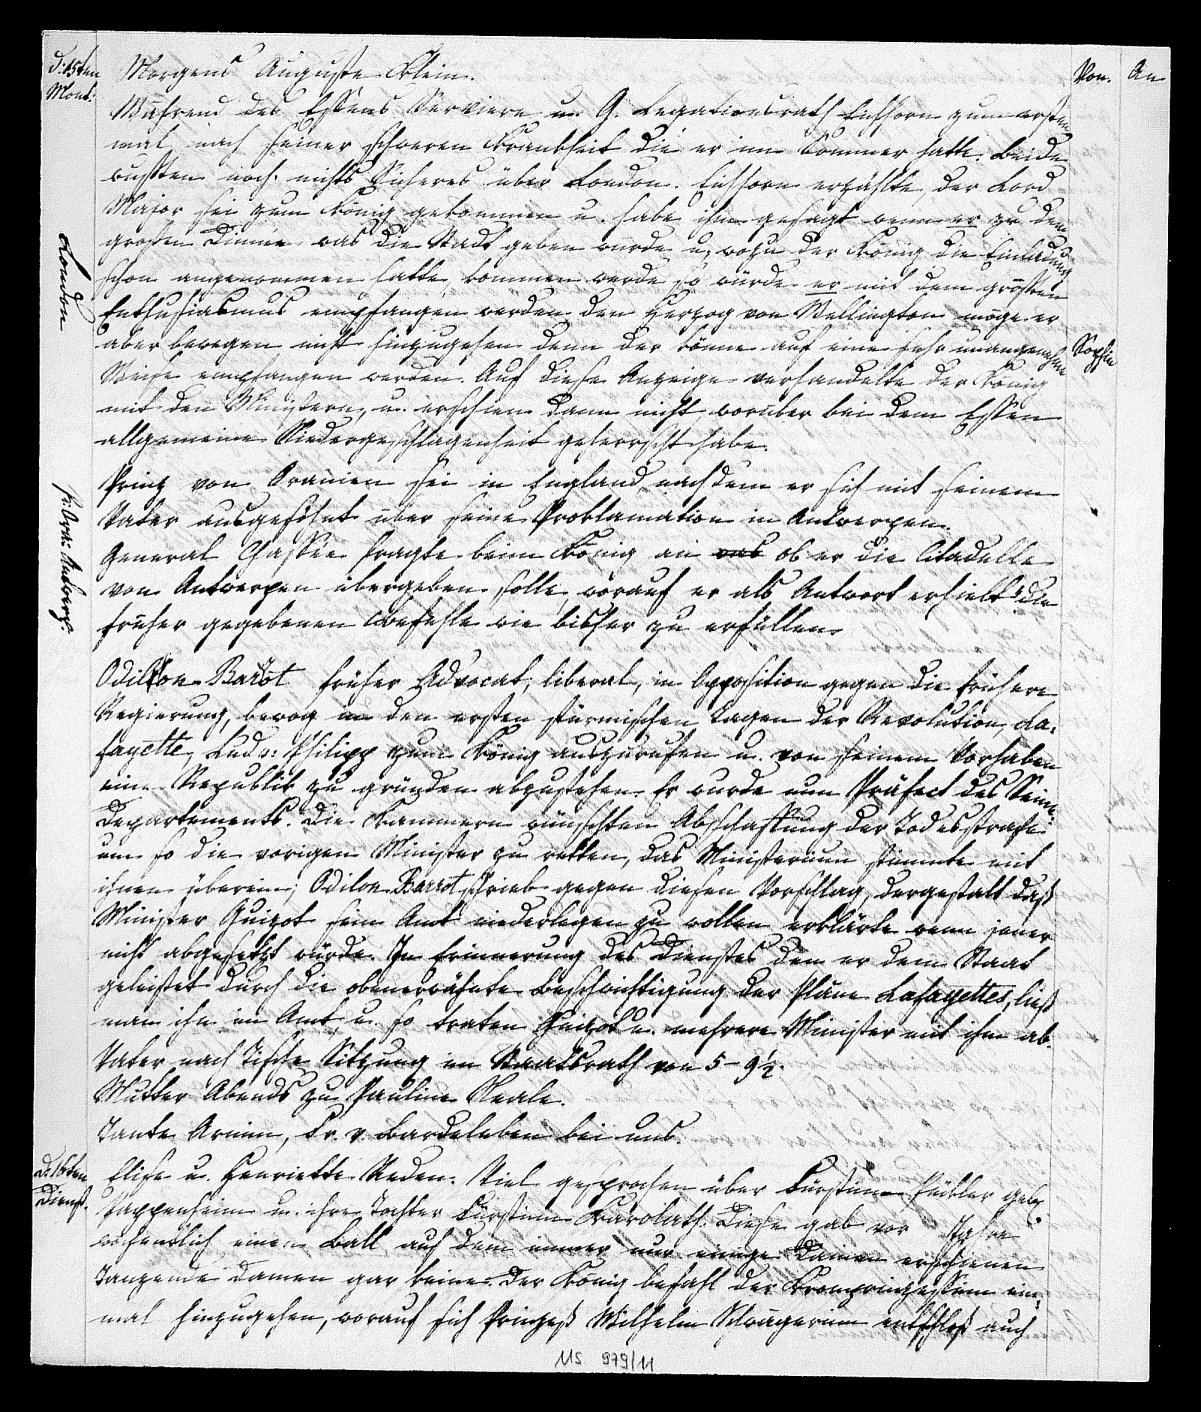 D. 15ten
Mont:
Von. An
Morgens Auguste Klein.
Während des Essens Serviere u. G. Legationsrath Eichhorn zum ersten
mal nach seiner schweren Krankheit die er im Sommer hatte. Beide
wußten noch nichts Sicheres über London. Eichhorn erzählte, der Lord
Major sei zum König gekommen u. habe ihm gesagt wenn er zu dem
großen Dinnée was die Stadt geben würde u. wozu der König die Einladung
schon angenommen hatte kommen werde so würde er mit dem größten
Enthusiasmus empfangen werden den Herzog von Wellington möge er
aber bewegen nicht hinzugehen denn der könne auf eine sehr unangenehme
Weise empfangen werden. Auf diese Anzeige verhandelte der König
mit den Ministern, u. erschien dann nicht worüber bei dem Essen
allgemeine Niedergeschlagenheit geherrscht habe.
London
Sophie
Prinz von Oranien sei in England nachdem er sich mit seinem
Vater ausgesöhnt über seine Proklamation in Antwerpen.
General Chassée fragte beim König an was ob er die Citadelle
von Antwerpen übergeben solle, worauf er als Antwort erhielt die
früher gegebenen Befehle wie bisher zu erfüllen.
Odillon Barot früher Advocat, liberal, in Opposition gegen die frühere
Regierung, bewog in den ersten stürmischen Tagen der Revolution, La-
fayette, Ludw: Philipp zum König auszurufen u. von seinem Vorhaben
eine Republik zu gründen abzustehen. Er wurde nun Präfect des Seine-
Departements. Die Kammern wünschten Abschaffung der Todesstrafe
um so die vorigen Minister zu retten, das Ministerium stimmte mit
ihnen überein; Odilon Barrot schrieb gegen diesen Vorschlag, dergestalt daß
Minister Guizot sein Amt niederlegen zu wollen erklärte wenn jener
nicht abgesetzt würde. In Erinnerung des Dienstes den er dem Staat
geleistet durch die obenerwähnte Beschwichtigung der Pläne Lafayettes, ließ
man ihn im Amt, u. so traten Guizot u. mehrere Minister mit ihm ab.
Vater nach Tische Sitzung im Staatsrath von 5 – 9½.
Mutter Abends zu Pauline Neale.
Tante Arnim, Fr. v. Bardeleben bei uns.
D. 16ten
Dienst.
Elise u. Henriette Reden. Viel gesprochen über Fürstinn Pückler geb.
Pappenheim u. ihre Tochter Fürstinn Carolath. Diese gab vor Jahre
wöchentlich einen Ball auf dem immer nur einige Damen erschienen
Tanzende Damen gar keine. Der König befahl der Kronprinzessinn ein-
mal hinzugehen, worauf sich Prinzeß Wilhelm Schwägerinn entschloß auch
MS 979/11